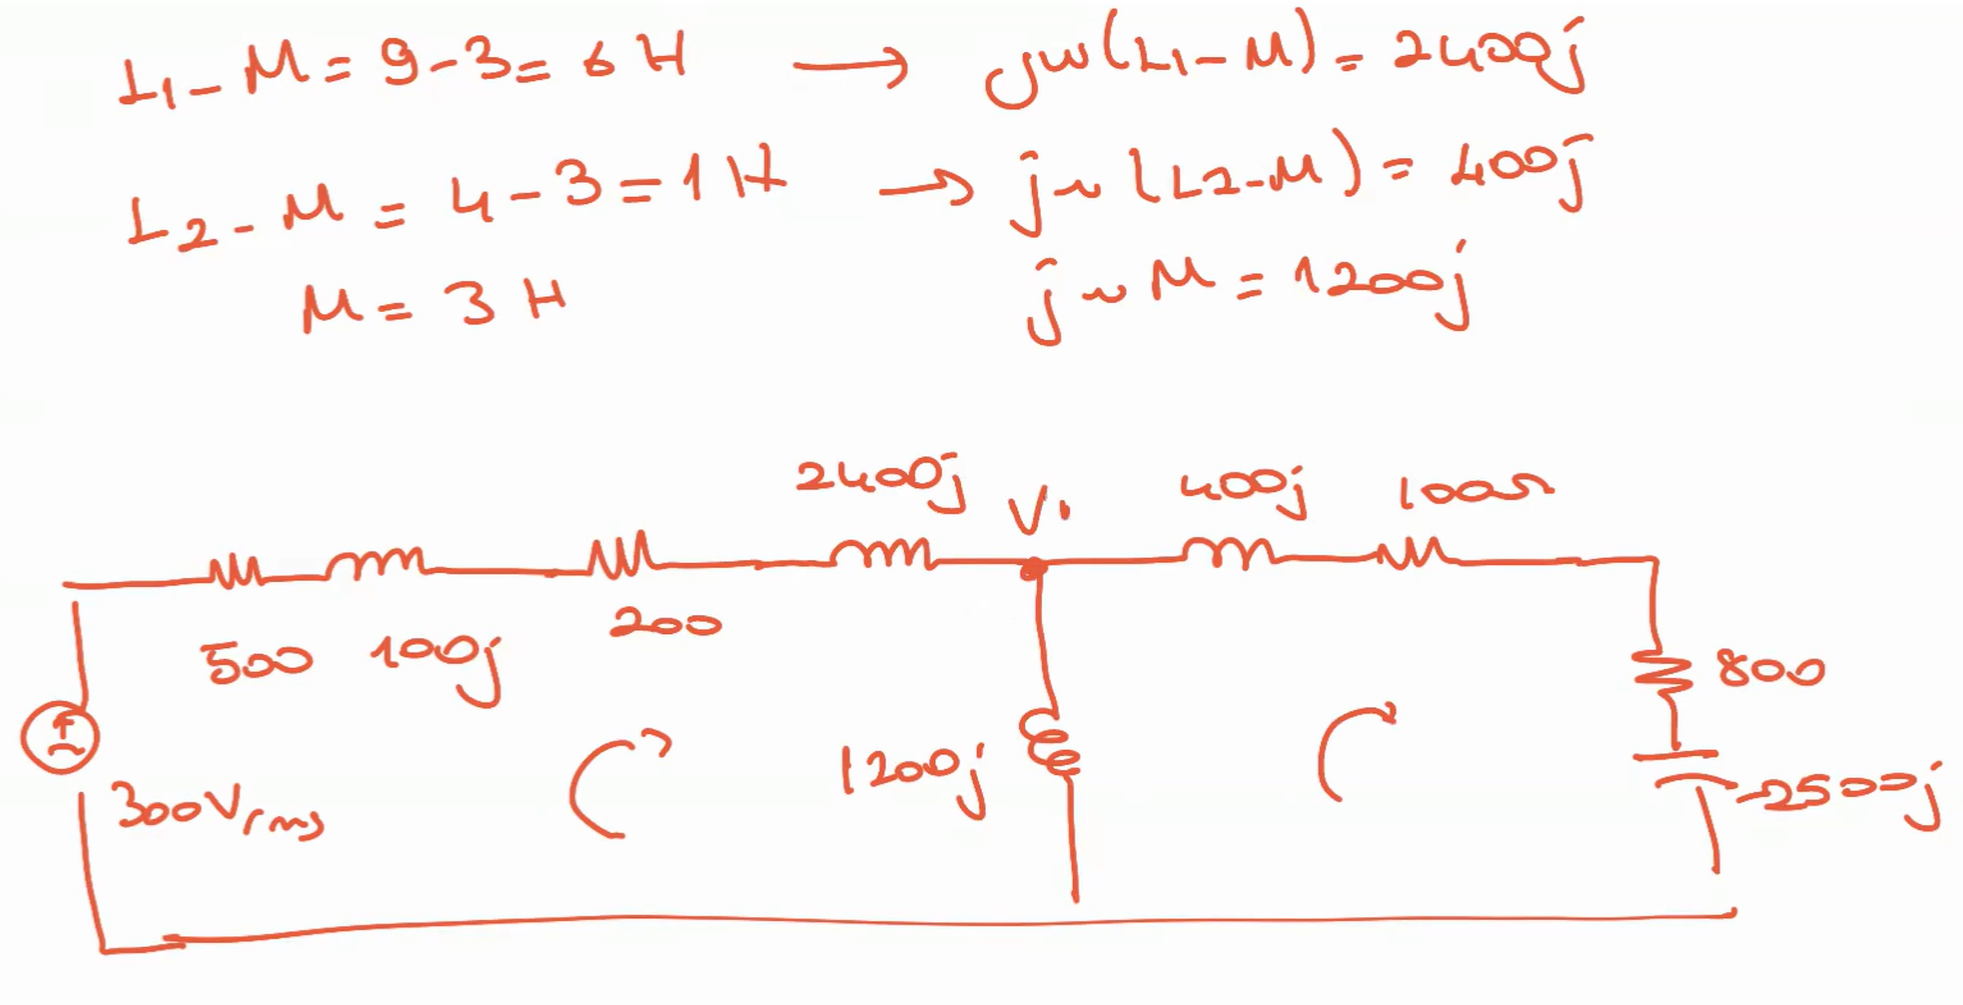 L1 - M = 9 - 3 = 6 H → jw(L1 - M) = 2400j
L2 - M = 4 - 3 = 1 H → jw(L2 - M) = 400j
M = 3 H jwM = 1200j
2400j V1 400j 100Ω
500 100j 200
800
1200j
300Vrms
-2500j